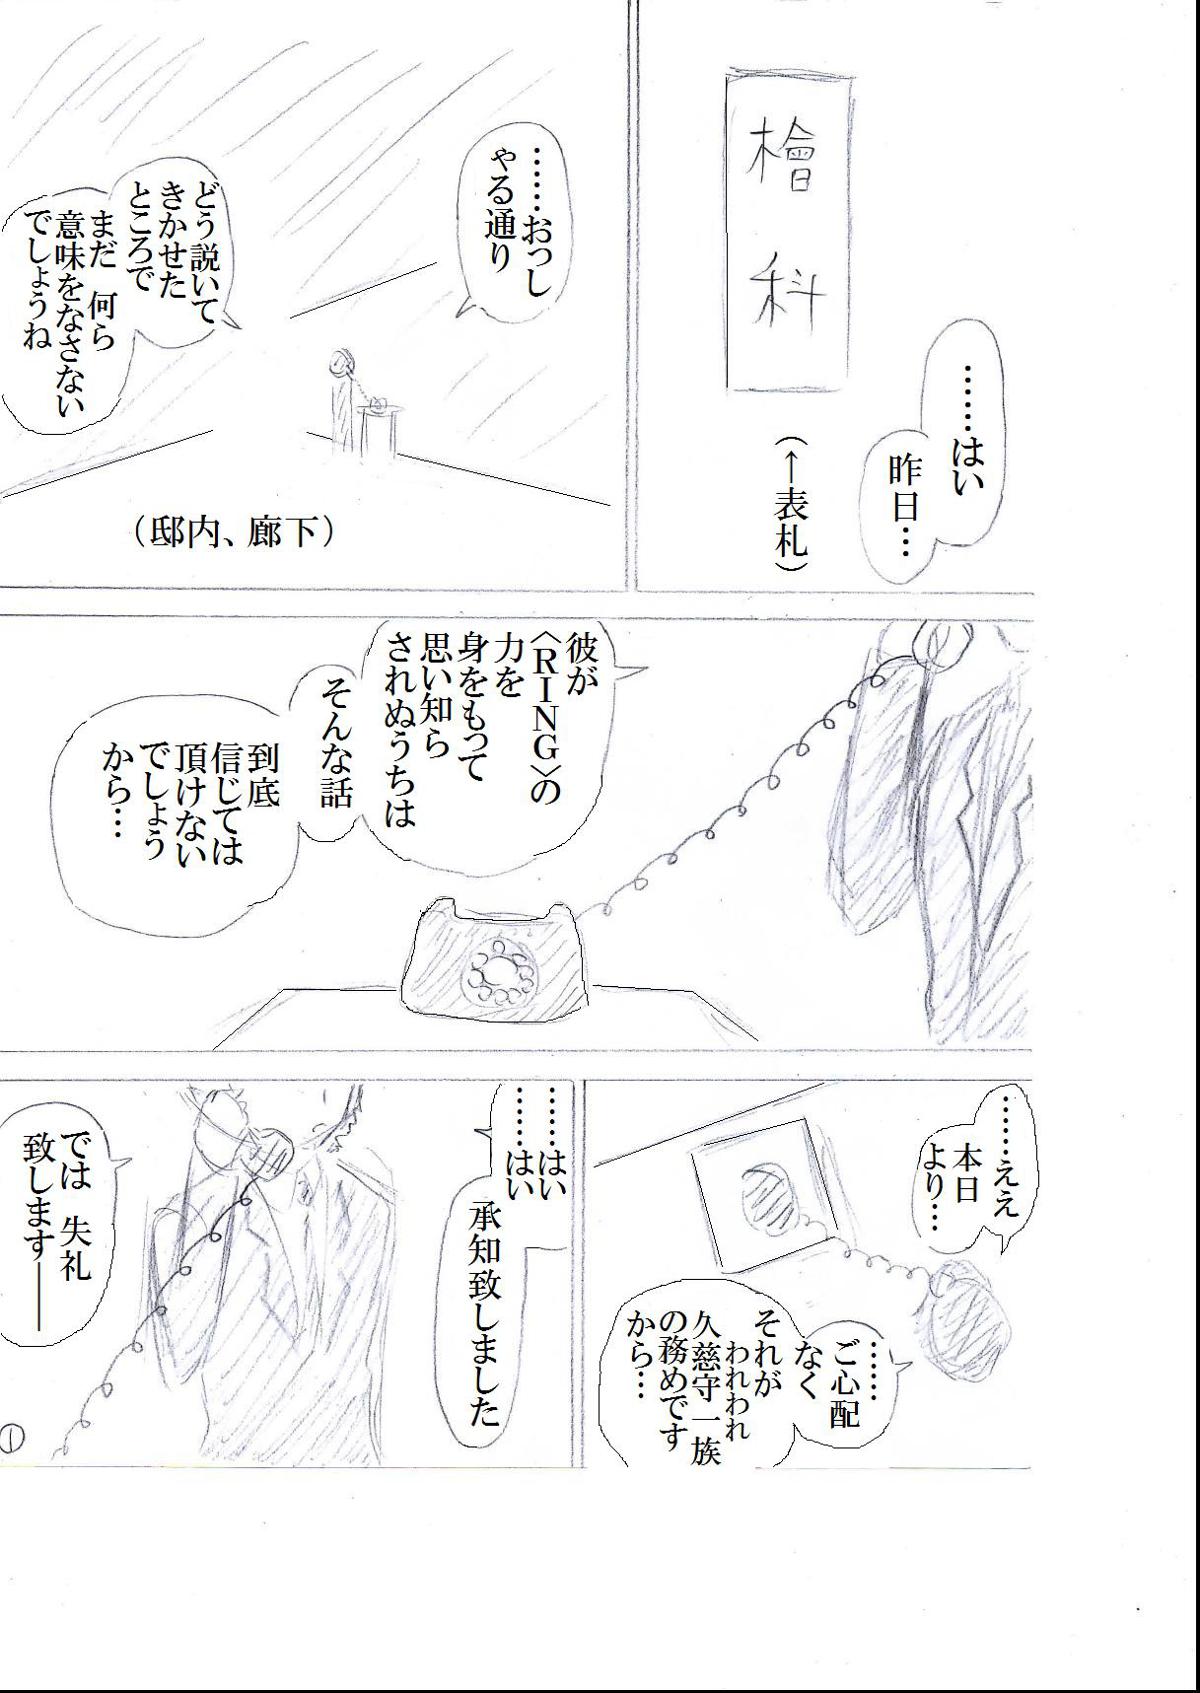 檜科
(←表札)
……はい
昨日…
……おっし
ゃる通り
どう説いて
きかせた
ところで
まだ 何ら
意味をなさない
でしょうね
(邸内、廊下)
彼が
〈RING〉の
力を
身をもって
思い知ら
されぬうちは
そんな話
到底
信じては
頂けない
でしょう
から…
……ええ
本日
より…
……
ご心配
なく
それが
われわれ
久慈守一族
の務めです
から…
……はい
……はい
承知致しました
では 失礼
致します――
①